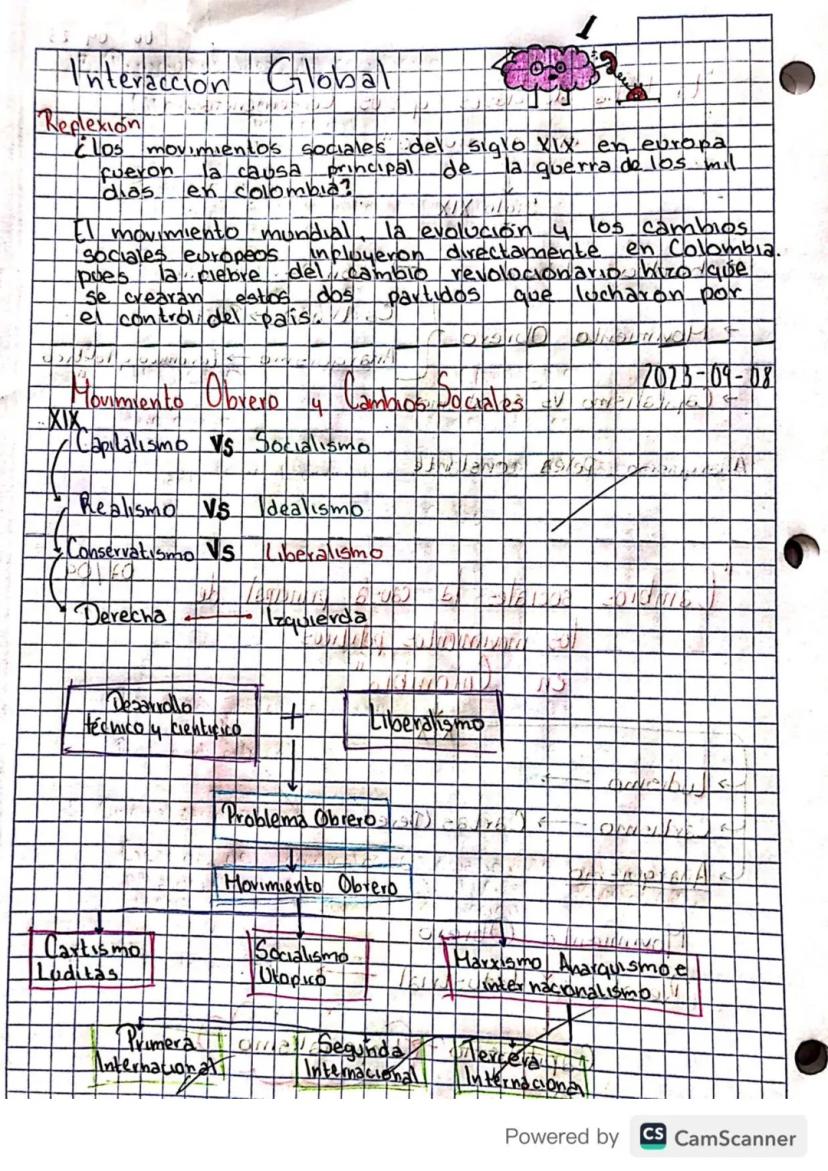 1
Interacción Global
Replexión
¿los movimientos sociales del siglo XIX en europa
fueron la causa principal de la guerra de los mil
dias en colombia?
El movimiento mundial, la evolución y los cambios
sociales europeos inpluyeron directamente en Colombia.
pues la fiebre del cambio revolocionario hizo que
se crearan estos dos partidos que lucharon por
el control del país.
2023-09-08
Movimiento Obrero y Cambios Sociales
XIX
Capitalismo VS Socialismo
Realismo VS Idealismo
Conservatismo VS Liberalismo
Derecha Izquierda
Desarrollo
técnico y cientipico + Liberalismo
Problema Obrero
Movimiento Obrero
Cartismo
Luditas
Socialismo
Utopico
Marxismo Anarquismo e
internacionalismo
Primera
Internacional
Segunda
Internacional
Tercera
Internacional
Powered by CS CamScanner